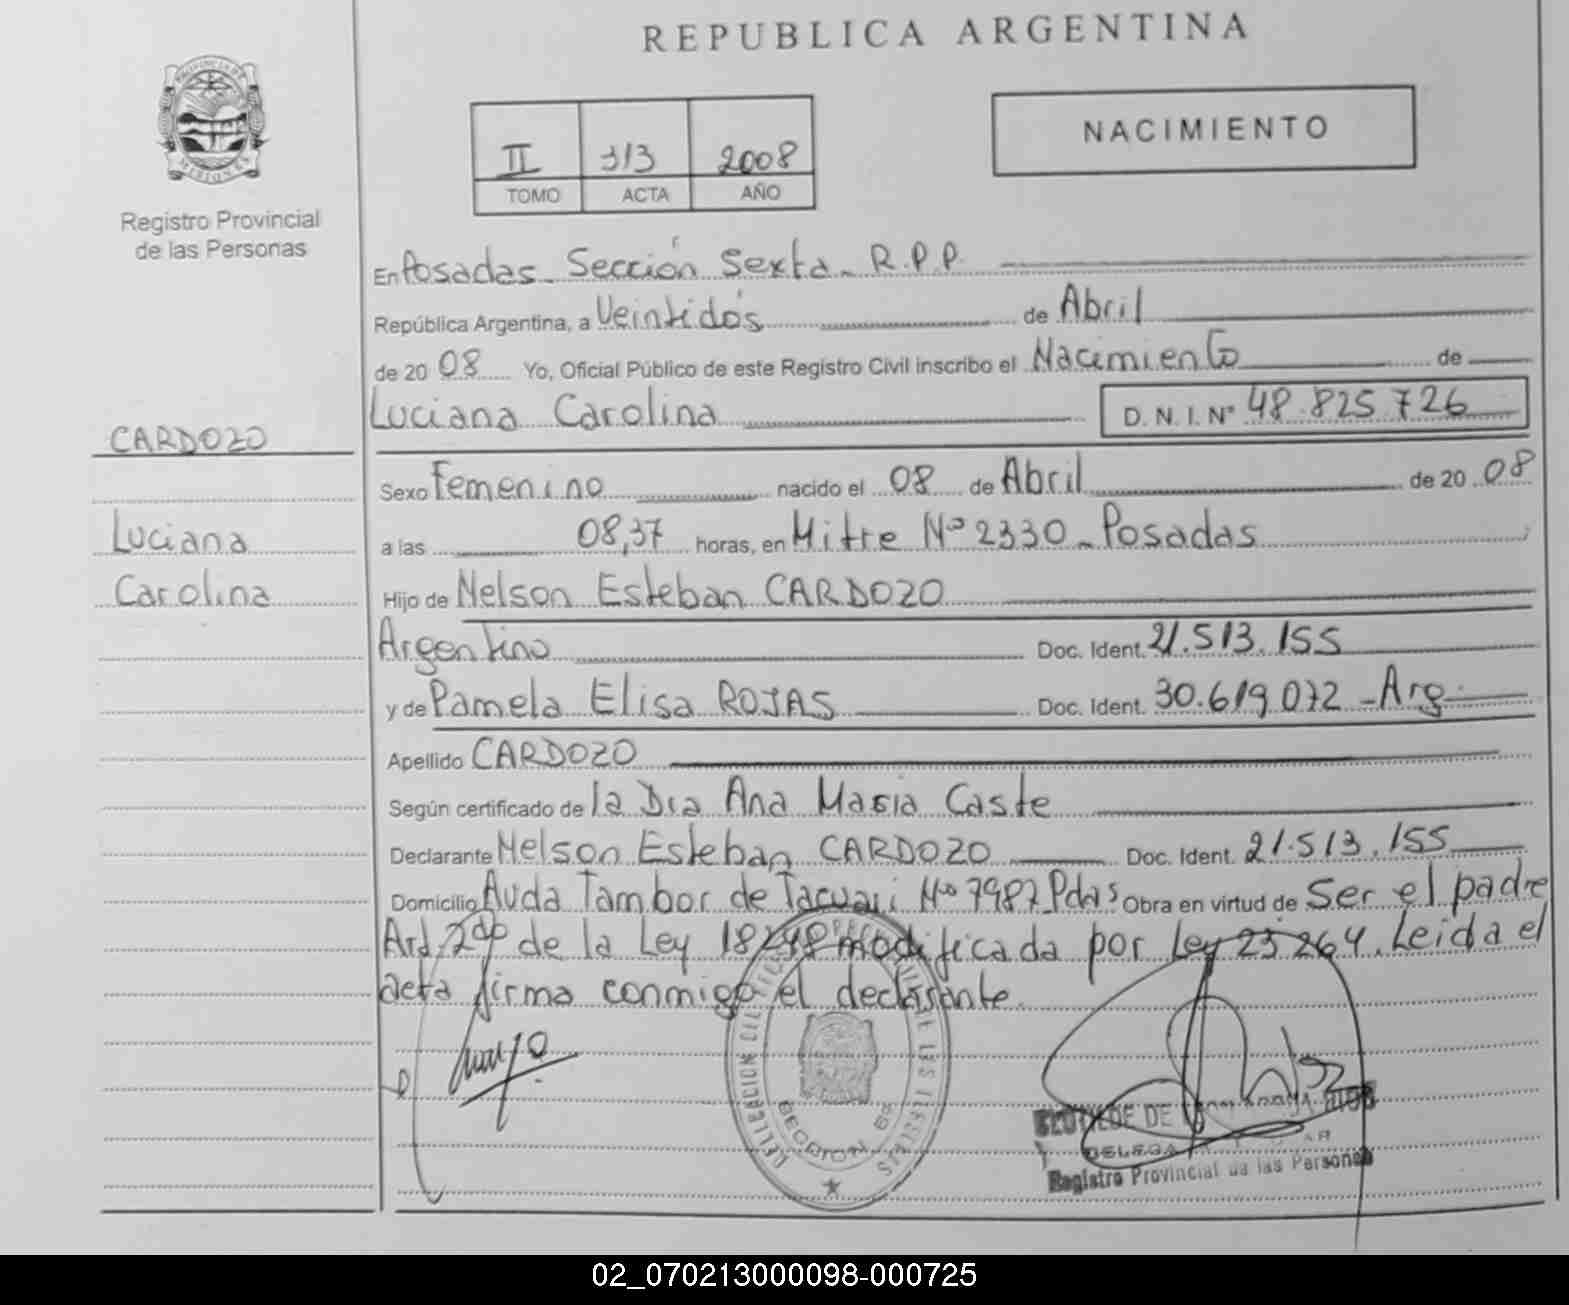 REPUBLICA ARGENTINA
PROVINCIA DE MISIONES
Registro Provincial
de las Personas
II 313 2008
TOMO ACTA AÑO
NACIMIENTO
En Posadas Sección Sexta R.P.P.
República Argentina, a Veintidós de Abril
de 2008 Yo, Oficial Público de este Registro Civil inscribo el Nacimiento de
Luciana Carolina D. N. I. Nº 48.825.726
CARDOZO
Sexo Femenino nacido el 08 de Abril de 2008
Luciana
a las 08,37 horas, en Mitre Nº 2330 - Posadas
Carolina
Hijo de Nelson Esteban CARDOZO
Argentino Doc. Ident. 21.513.155
y de Pamela Elisa ROJAS Doc. Ident. 30.619.072 - Arg.
Apellido CARDOZO
Según certificado de la Dra Ana Maria Caste
Declarante Nelson Esteban CARDOZO Doc. Ident. 21.513.155
Domicilio Avda Tambor de Tacuari Nº 7987 Pdas Obra en virtud de Ser el padre
Art 2do de la Ley 18248 modificada por Ley 23264. Leida el
acta firma conmigo el declarante.
SECCION 6ª
DE
Registro Provincial de las Personas
02_070213000098-000725